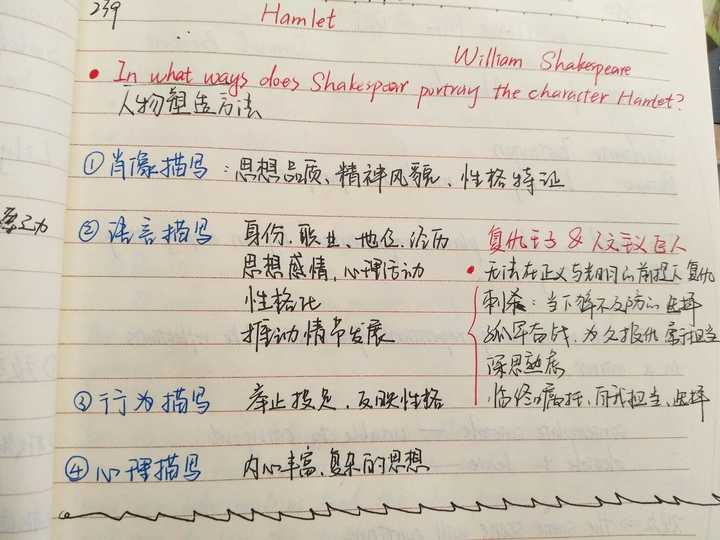 239
Hamlet
William Shakespeare
• In what ways does Shakespear portray the character Hamlet?
人物塑造方法
① 肖像描写：思想品质、精神风貌、性格特证
② 语言描写 身份、职业、地位、经历
思想感情、心理活动
性格化
推动情节发展
复仇王子 & 人文主义巨人
• 无法在正义与光明的前提下复仇
刺杀：当下猝不及防的选择
孤军奋战，为父报仇，勇于担当
深思熟虑
临终嘱托、自我担当、选择
③ 行为描写 举止投足、反映性格
④ 心理描写 内心丰富、复杂的思想